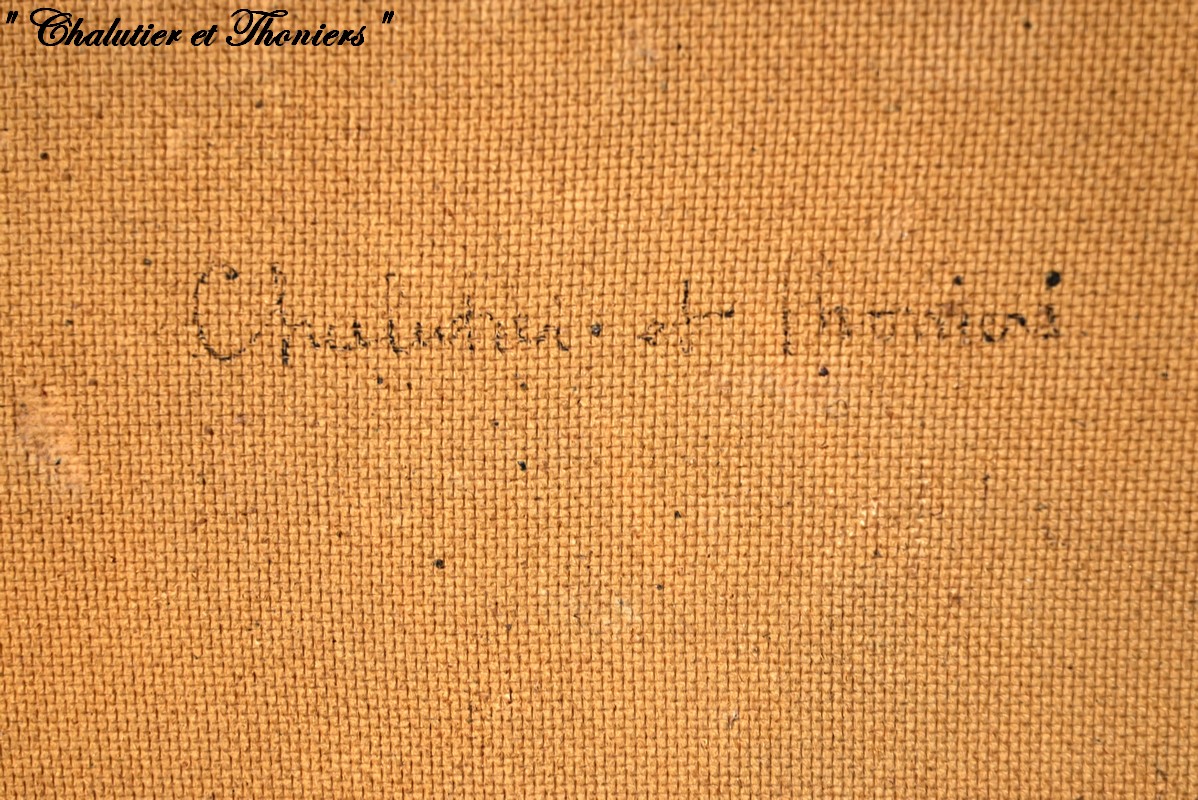 " Chalutier et Thoniers "
Chalutier et Thoniers